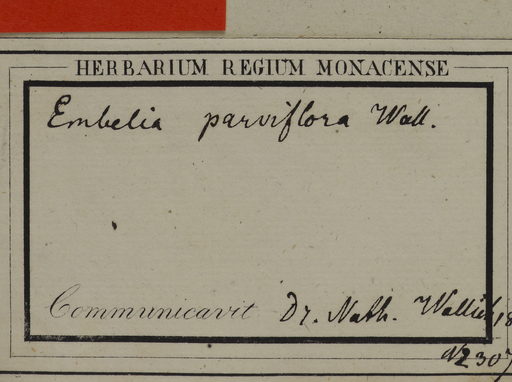 HERBARIUM REGIUM MONACENSE
Embelia parviflora Wall.
Communicavit Dr. Nath. Wallich 18
N 2307